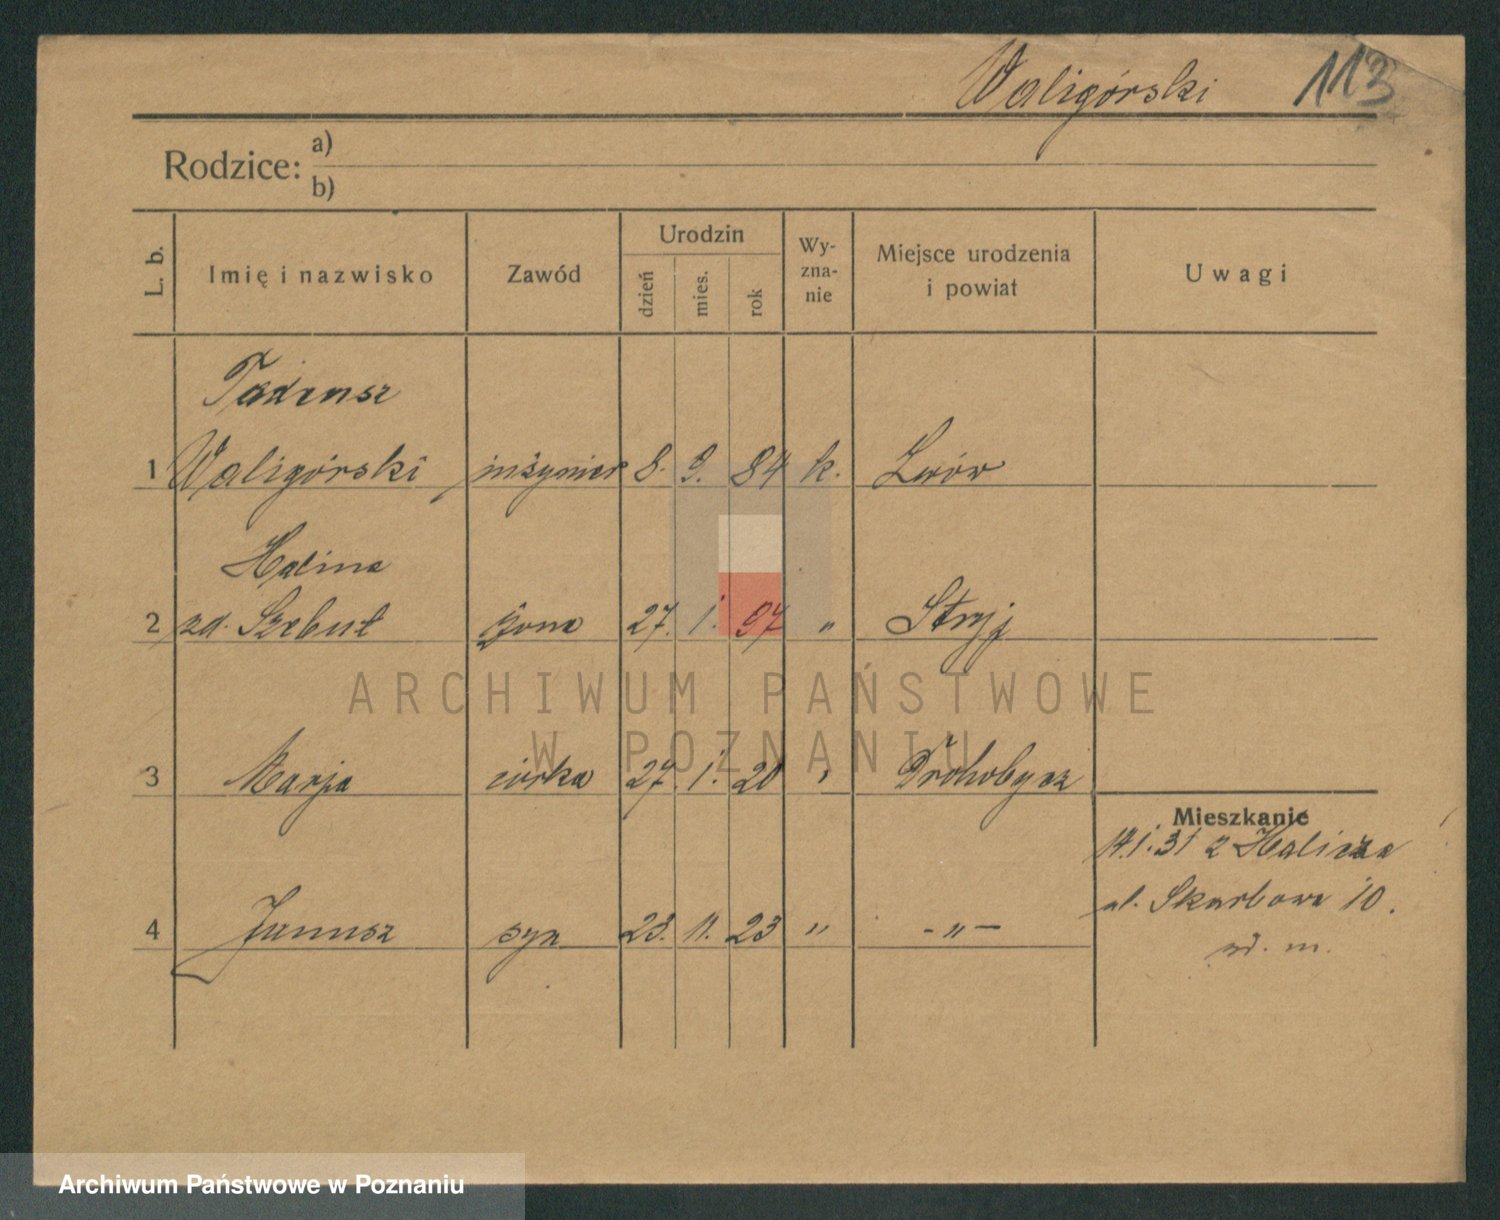 Waligórski 113
Rodzice: a)
b)
L. b. Imię i nazwisko Zawód Urodzin dzień mies. rok Wy-zna-nie Miejsce urodzenia i powiat Uwagi
Tadeusz
1 Waligórski inżynier 8. 9. 84 k. Lwów
Halina
2 zd. Szebut żona 27. 1. 97 " Stryj
ARCHIWUM PAŃSTWOWE
W POZNANIU
3 Marja córka 27. 1. 20 " Drohobycz
Mieszkanie
14.1.31 z Halicza
4 Janusz syn 23. 11. 23 " -"-
ul. Skarbowa 10.
m.
Archiwum Państwowe w Poznaniu